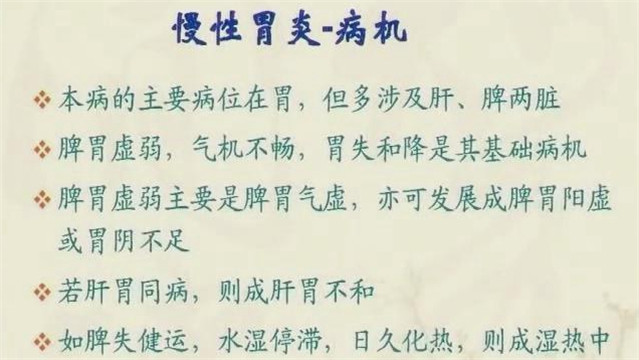 慢性胃炎-病机
本病的主要病位在胃，但多涉及肝、脾两脏
脾胃虚弱，气机不畅，胃失和降是其基础病机
脾胃虚弱主要是脾胃气虚，亦可发展成脾胃阳虚
或胃阴不足
若肝胃同病，则成肝胃不和
如脾失健运，水湿停滞，日久化热，则成湿热中